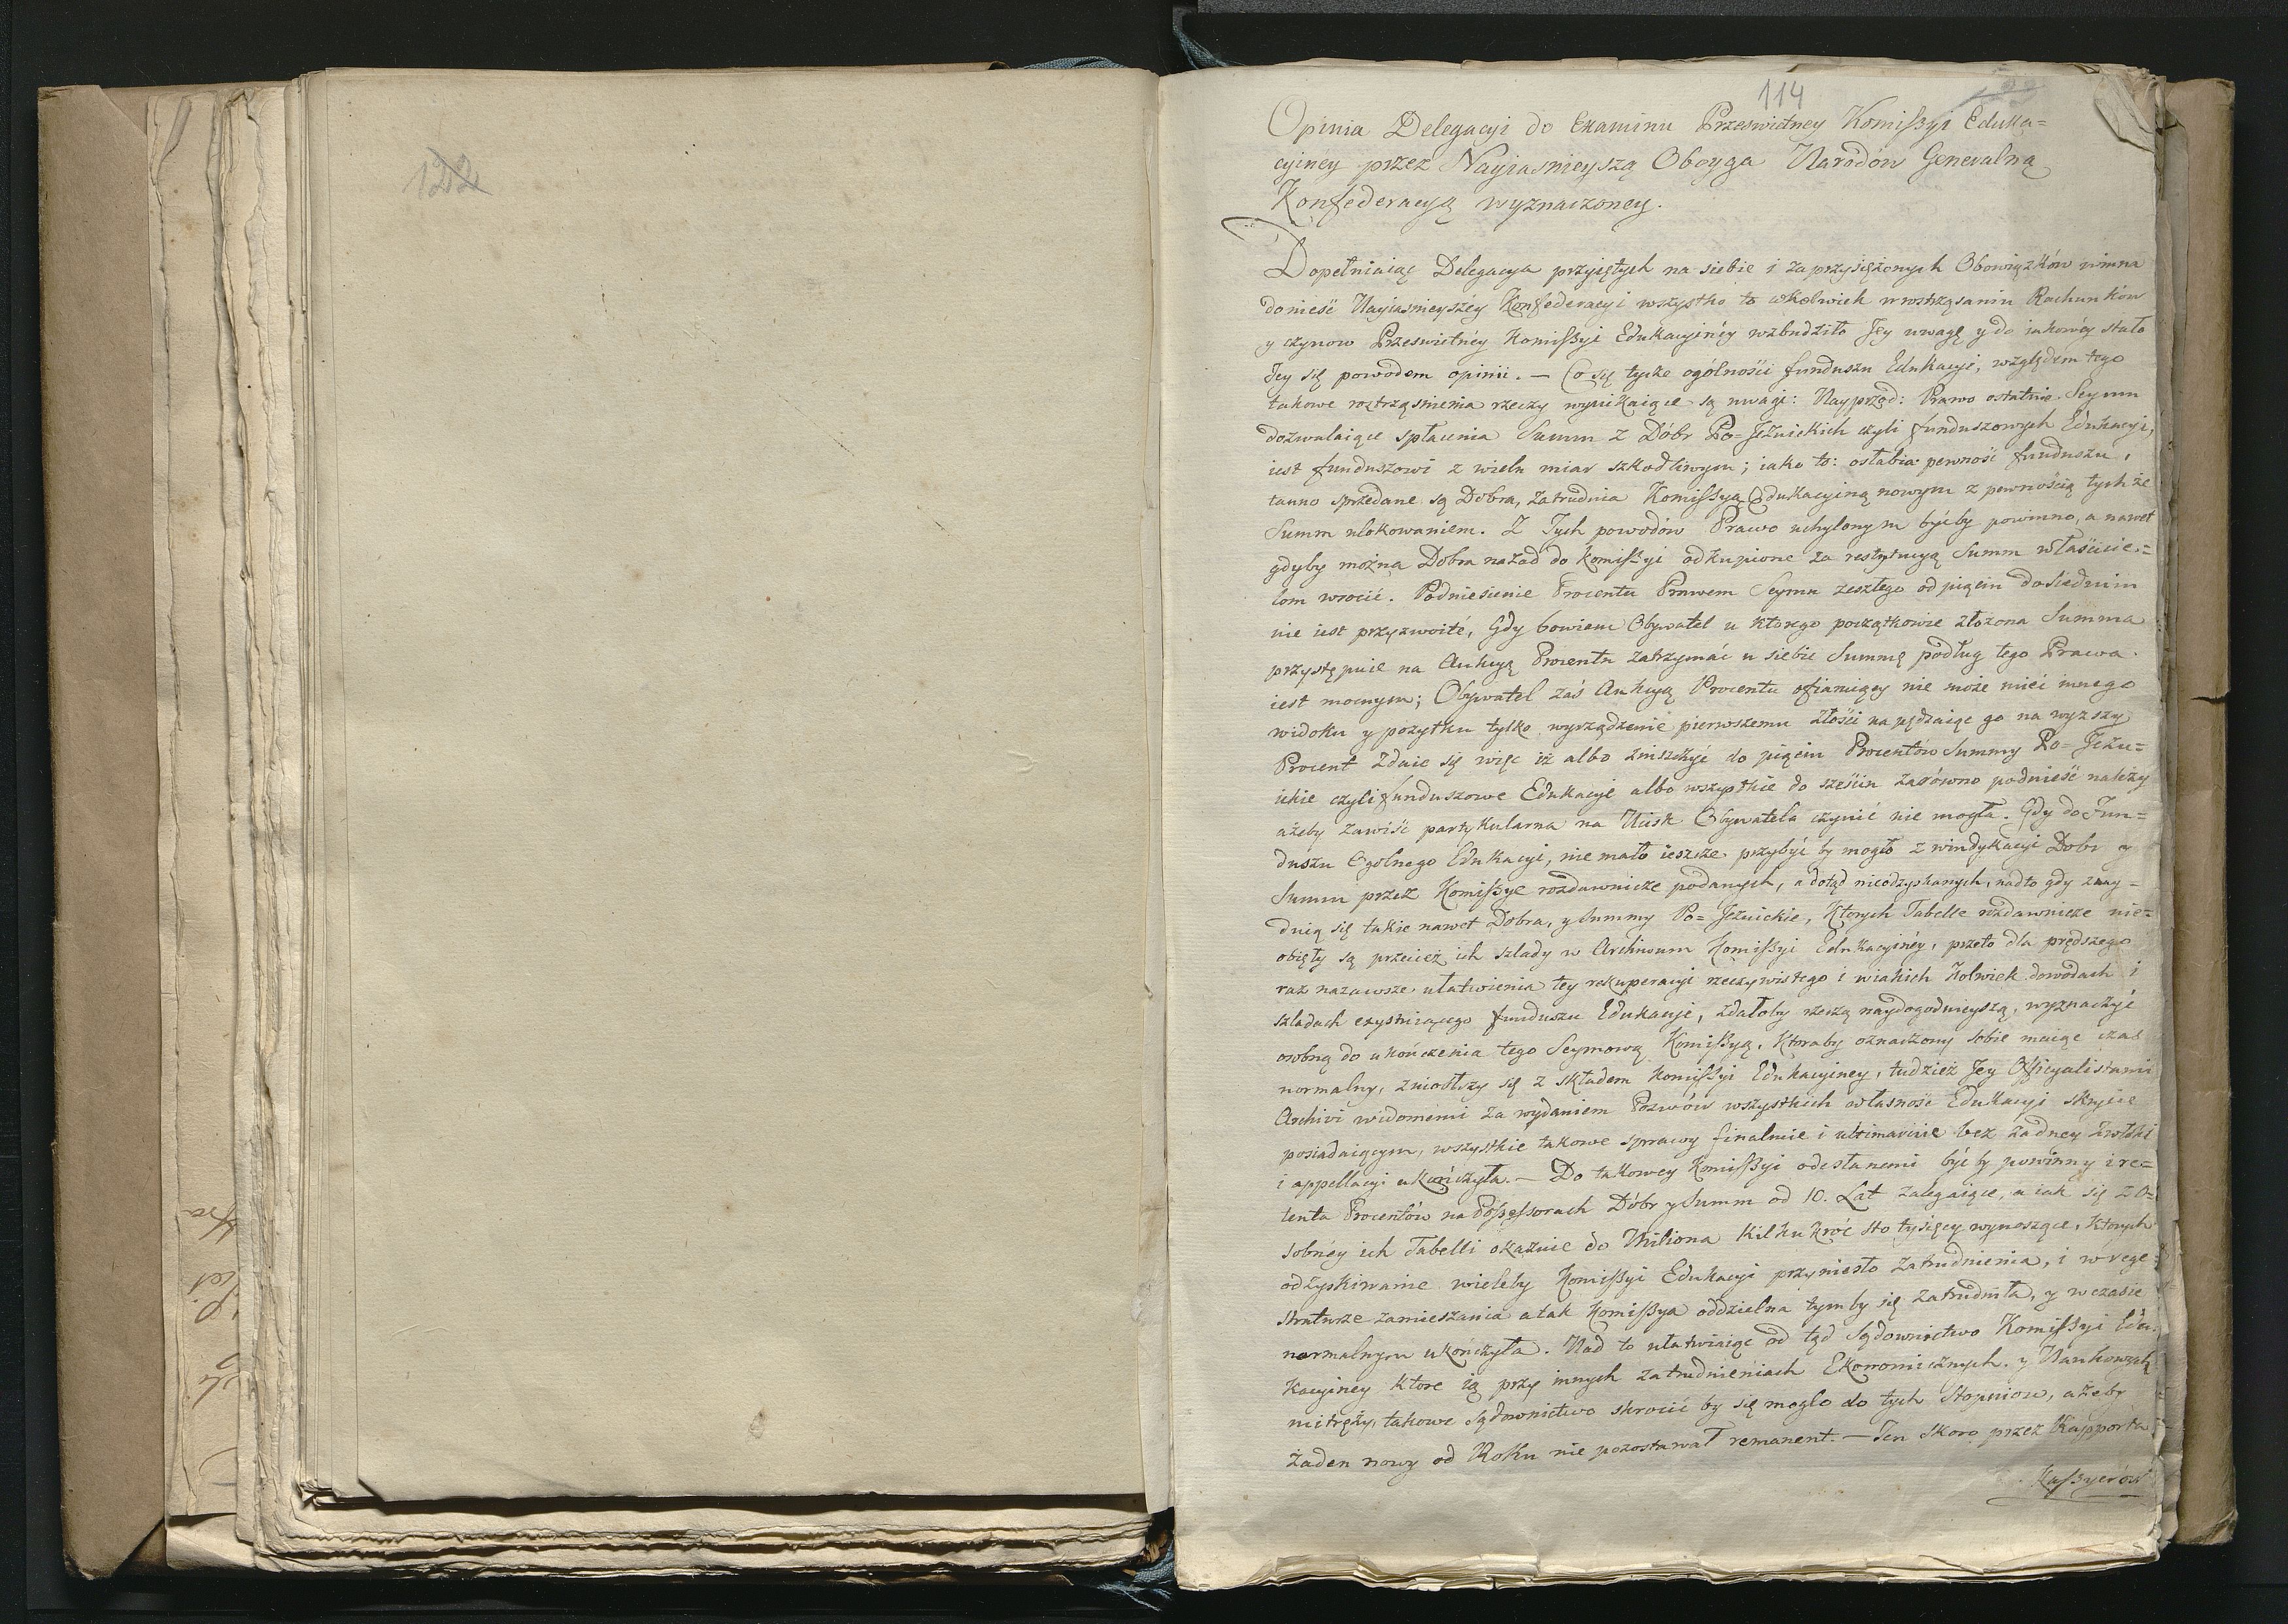 122
114
Opinia Delegacyi do Examinu Prześwietney Komißyi Eduka=
cyiney przez Nayiaśnieyszą Oboyga Narodów Generalną
Konfederacyą wyznaczoney.
Dopełniaiąc Delegacya przyiętych na siebie i zaprzysiężonych Obowiązków winna
donieść Nayiaśnieyszéy Konfederacyi wszystko to cokolwiek w roztrząsaniu Rachunków
y czynow Prześwietnéy Komißyi Edukacyinéy wzbudziło Jey uwagę y do iakowéy stało
Jey się powodem opinii. — Co się tycze ogólności funduszu Edukacyi, względem tego
takowe roztrząśnienia rzeczy wynikaiące są uwagi: Nayprzod: Prawo ostatnie Seymu
dozwalaiące spłacenia Summ z Dóbr Po=Jezuickich czyli funduszowych Edukacyi,
iest funduszowi z wielu miar szkodliwym; iako to: osłabia pewność funduszu,
tanno sprzedane są Dobra, zatrudnia Komißyą Edukacyiną nowym z pewnością tychże
Summ ulokowaniem. Z Tych powodów Prawo uchylonym byćby powinno, a nawet
gdyby można Dobra nazad do Komißyi odkupione za restytucyą Summ właścicie=
lom wrocić. Podniesienie Procentu Prawem Seymu zeszłego od pięciu do siedmiu
nie iest przyzwoité, Gdy bowiem Obywatel u którego początkowie złożona Summa
przystępuie na Aukcyą Procentu zatrzymać u siebie Summę podług tego Prawa
iest mocnym; Obywatel zaś Aukcyą Procentu ofiaruiący nie może mieć innego
widoku y pożytku tylko wyrządzenie pierwszemu złości napędzaiąc go na wyższy
Procent zdaie się więc iż albo zniszczyć do pięciu Procentów Summy Po=Jezu=
ickie czyli funduszowe Edukacyi albo wszystkie do sześciu zarówno podnieść należy
ażeby zawiść partykularna na Ucisk Obywatela czynić nie mogła. Gdy do Fun=
duszu Ogolnego Edukacyi, nie mało ieszcze przybyć by mogło z windykacyi Dobr y
Summ przez Komißye rozdawnicze podanych, a dotąd nieodzyskanych, nadto gdy znay=
duią się takie nawet Dobra, y Summy Po=Jezuickie, Ktorych Tabelle rozdawnicze nie=
obięły są przecież ich szlady w Archiwum Komißyi Edukacyinéy, przeto dla prędszego
raz nazawsze ułatwienia tey rekuperacyi rzeczywistego i w iakich kolwiek dowodach i
szladach exystuiącego funduszu Edukacyi, zdałoby rzeczą naydogodnieyszą, wyznaczyć
osobną do ukończenia tego Seymową Komißyą, Któraby oznaczony sobie maiąc czas
normalny, zniosłszy się z składem Komißyi Edukacyiney, tudzież Jey Officyalistami
Archivi widomemi za wydaniem Pozwów wszystkich własność Edukacyi skrycie
posiadaiącym, wszystkie takowe sprawy finalnie i ultimarie bez żadney zwłoki
i appellacyi ukończyła. — Do takowey Komißyi odesłanemi być by powinny i re=
tenta Procentów na Poßeßorach Dóbr y Summ od 10. Lat zalegaiące, a iak się z O=
sobnéy ich Tabelli okazuie do Miliona kilku kroć sto tysięcy wynoszące, Ktorych
odzyskiwanie wieleby Komißyi Edukacyi przyniesło zatrudnienia, i w rege=
straturze zamieszania a tak Komißya oddzielna tymby się zatrudniła, y w czasie
normalnym ukończyła. Nad to ułatwiaiąc od tąd Sądownictwo Komißyi Edu=
kacyiney które ią przy innych zatrudnieniach Ekonomicznych y Naukowych
mitręży, takowe Sądownictwo skrocić by się mogło do tych Stopniow, ażeby
żaden nowy od Roku nie pozostawał remanent. — Ten skoro przez Rapporta
Kaßyerów